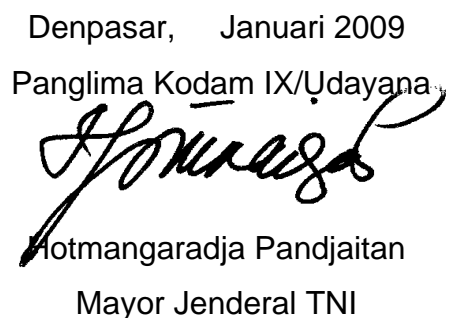 Denpasar, Januari 2009
Panglima Kodam IX/Udayana
Hotmangaradja Pandjaitan
Mayor Jenderal TNI